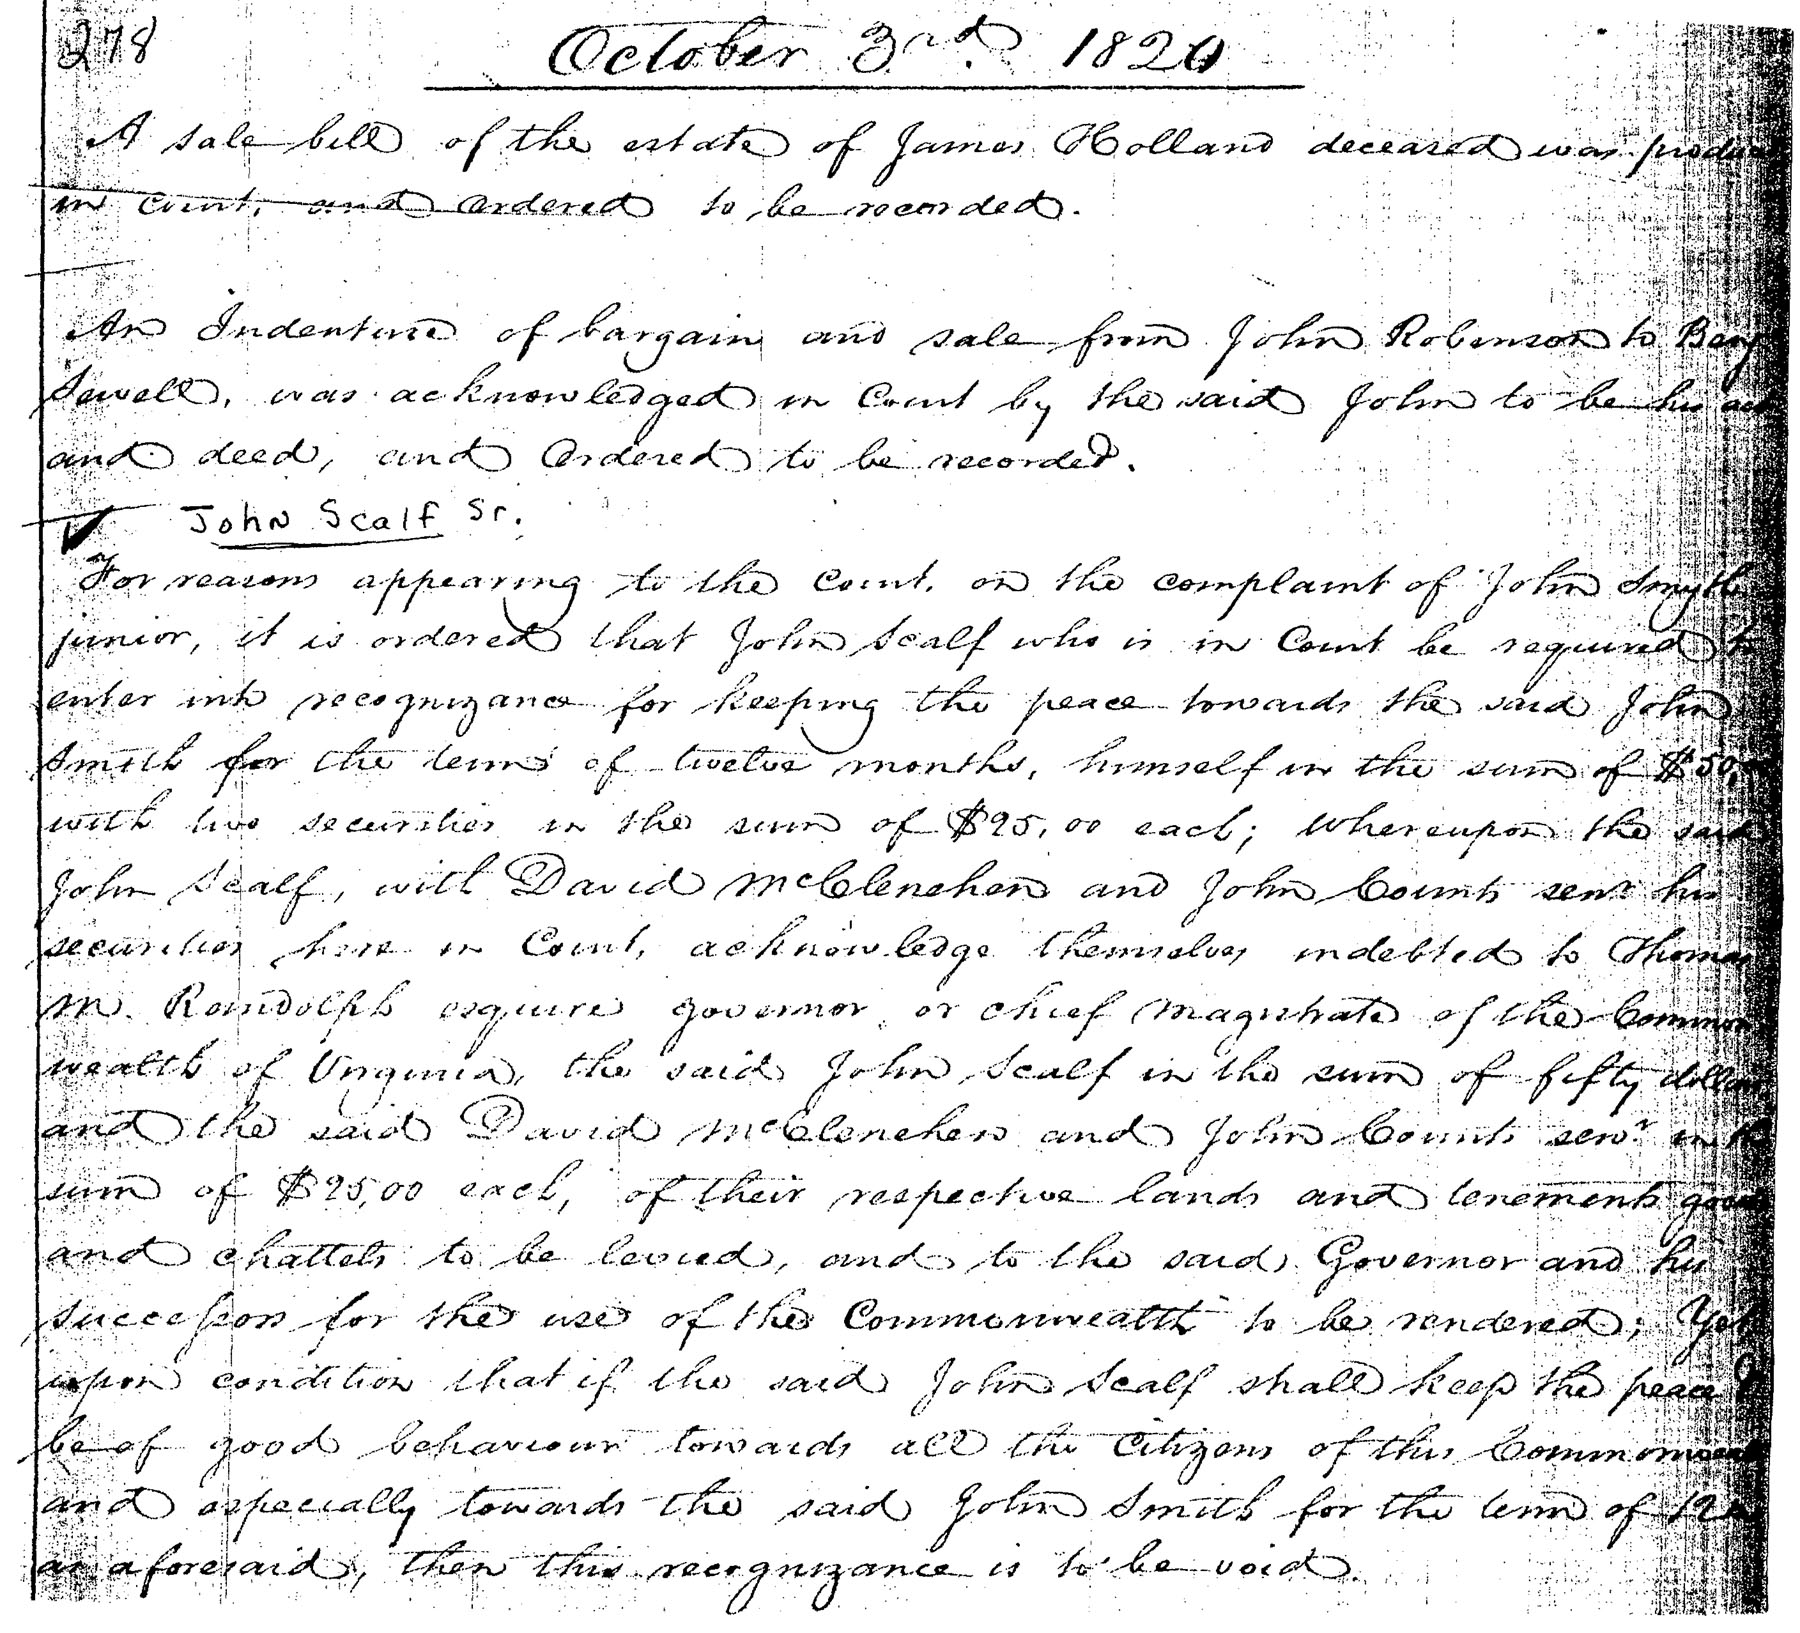 278
October 3rd. 1820
A sale bill of the estate of James Holland deceased was
in Court, and ordered to be recorded.
An Indenture of bargain and sale from John Robinson to Benj
Sewell, was acknowledged in Court by the said John to be his act
and deed, and ordered to be recorded.
John Scalf Sr.
For reasons appearing to the Court, on the complaint of John Smyth
junior, it is ordered that John Scalf who is in Court be required to
enter into recognizance for keeping the peace towards the said John
Smith for the term of twelve months, himself in the sum of
with two securities in the sum of $25,00 each; Whereupon the said
John Scalf, with David McClenehen and John Counts senr his
securities here in Court, acknowledge themselves indebted to Thomas
M. Randolph esquire governor or chief magistrate of the Common
wealth of Virginia, the said John Scalf in the sum of fifty dollars
and the said David McClenehen and John Counts senr in the
sum of $25,00 each, of their respective lands and tenements goods
and chattels to be levied, and to the said Governor and his
successors for the use of the Commonwealth to be rendered; Yet
upon condition that if the said John Scalf shall keep the peace &
be of good behaviour towards all the Citizens of this Commonwealth
and especially towards the said John Smith for the term of 12
as aforesaid, then this recognizance is to be void.